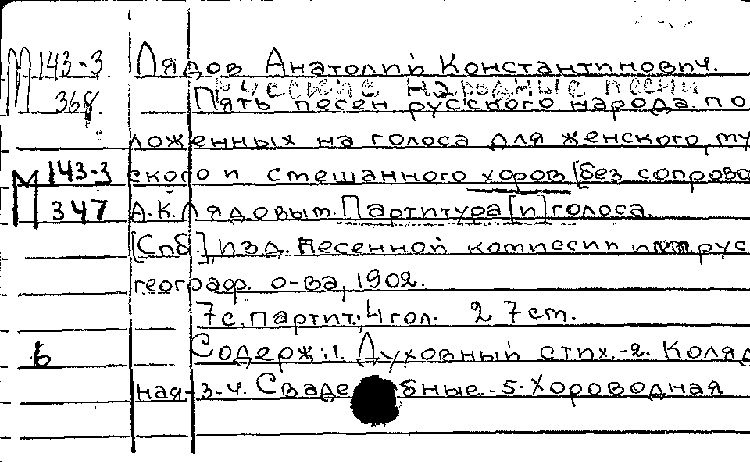 М 143-3 Лядов Анатолий Константинович.
368 Русские народные песни
Пять песен русского народа, по
ложенных на голоса для женского, му
М 143-3 ского и смешанного хоров [без сопрово
347 А.К.Лядовым. Партитура [и] голоса.
[Спб], изд. Песенной комиссии имп. рус
географ. о-ва, 1902.
7 с. партит; 4 гол. 27 cm.
6 Содерж: 1. Духовный стих.-2. Коляд
ная-3-4. Сваде бные.-5. Хороводная